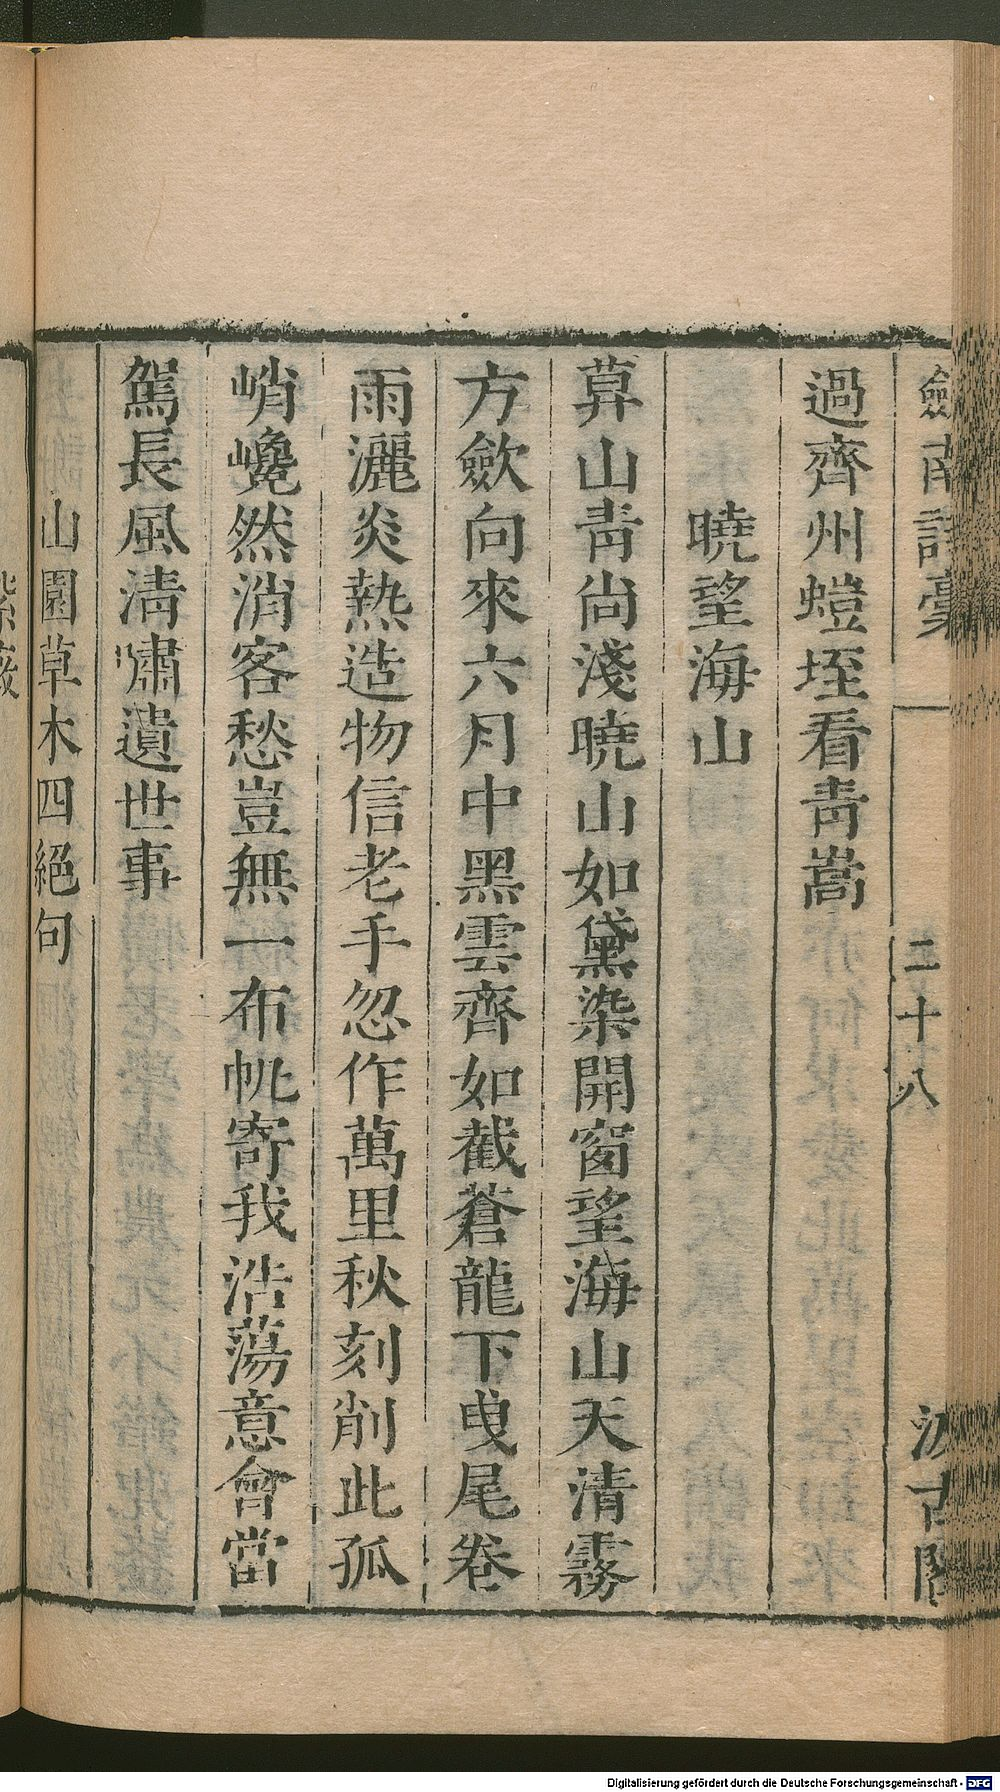 劒南詩稾
二十八
汲古閣
過齊州螘垤看靑嵩
曉望海山
暮山靑尙淺曉山如黛染開窗望海山天清霧
方歛向來六月中黑雲齊如截蒼龍下曳尾卷
雨灑炎熱造物信老手忽作萬里秋刻削此孤
峭巉然消客愁豈無一布帆寄我浩蕩意會當
駕長風淸嘯遺世事
山園草木四絕句
紫薇
Digitalisierung gefördert durch die Deutsche Forschungsgemeinschaft - DFG